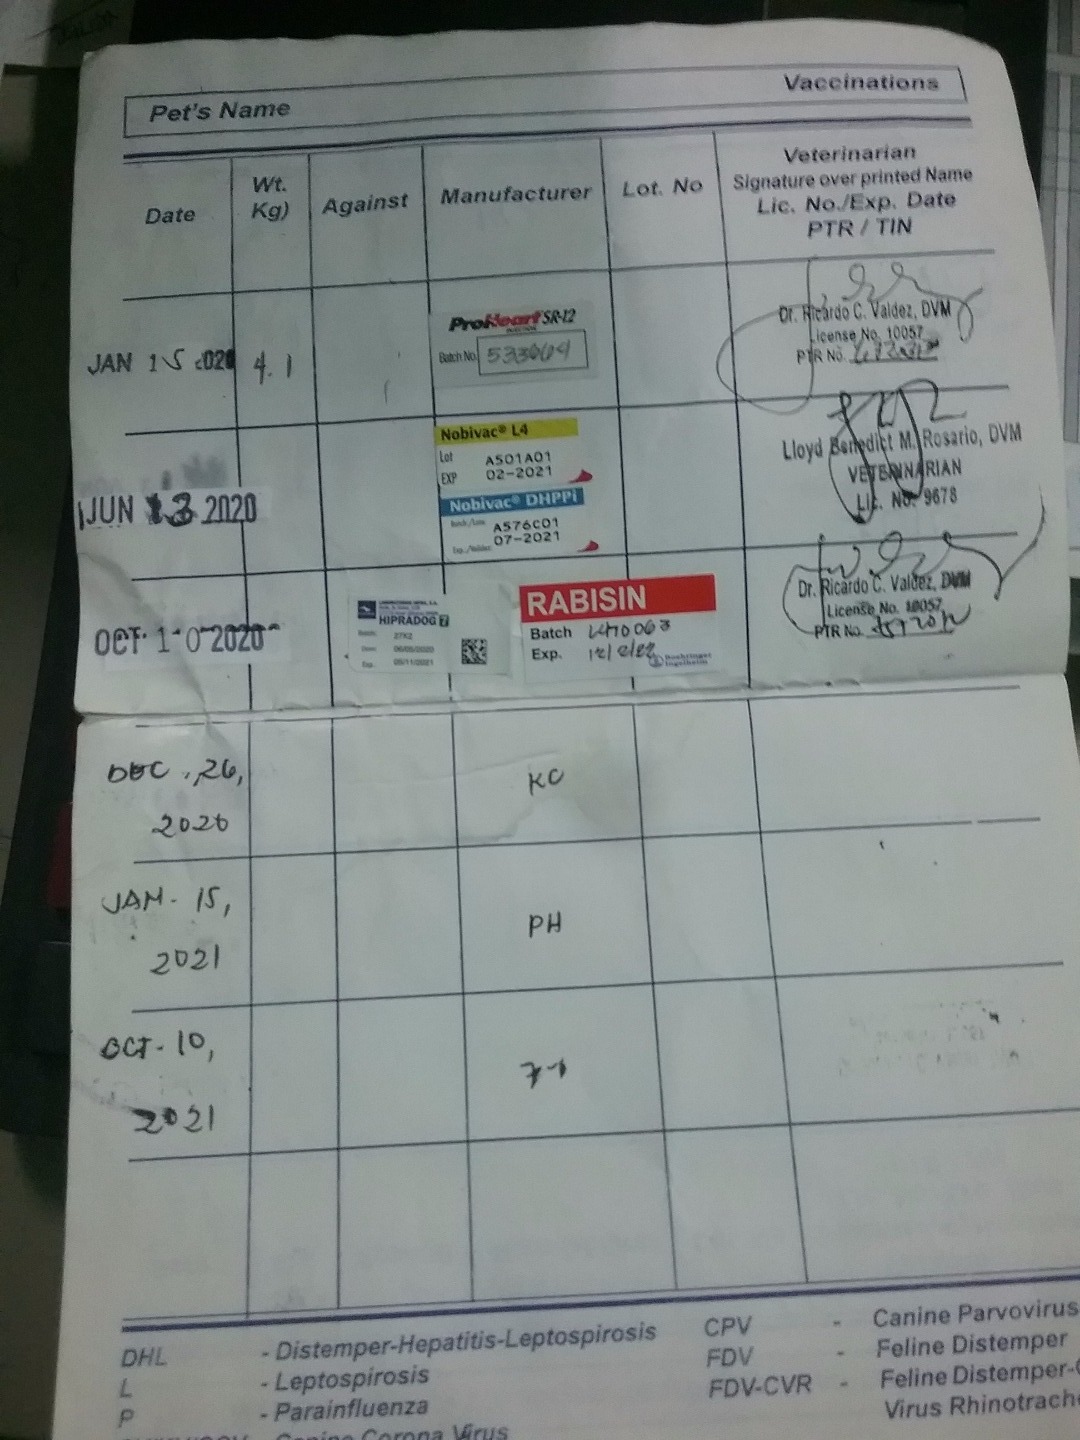 Pet's Name
Vaccinations
Date
Wt.
Kg)
Against
Manufacturer
Lot. No
Veterinarian
Signature over printed Name
Lic. No./Exp. Date
PTR / TIN
JAN 15 2020
4.1
ProHeart SR-12
INJECTION
Batch No.
Dr. Ricardo C. Valdez, DVM
License No. 10057
PTR No.
JUN 13 2020
Nobivac® L4
Lot A501A01
EXP 02-2021
Nobivac® DHPPi
A576C01
07-2021
Lloyd Benedict M. Rosario, DVM
VETERINARIAN
Lic. No. 9678
OCT 10 2020
HIPRADOG 7
RABISIN
Batch
Exp.
Boehringer
Ingelheim
Dr. Ricardo C. Valdez, DVM
License No. 10057
PTR No.
DEC. 26,
2020
KC
JAN. 15,
2021
PH
OCT. 10,
2021
DHL - Distemper-Hepatitis-Leptospirosis
L - Leptospirosis
P - Parainfluenza
Canine Corona Virus
CPV - Canine Parvovirus
FDV - Feline Distemper
FDV-CVR - Feline Distemper-
Virus